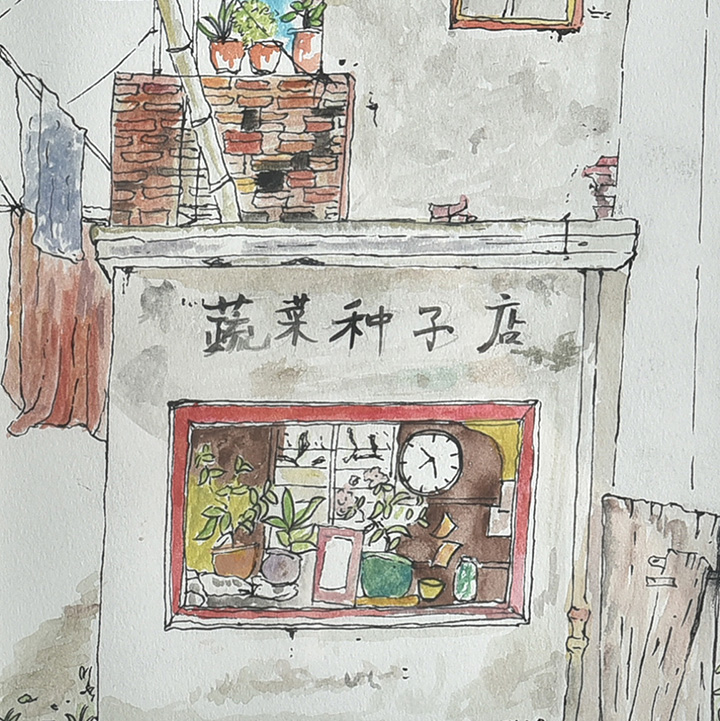 蔬菜种子店